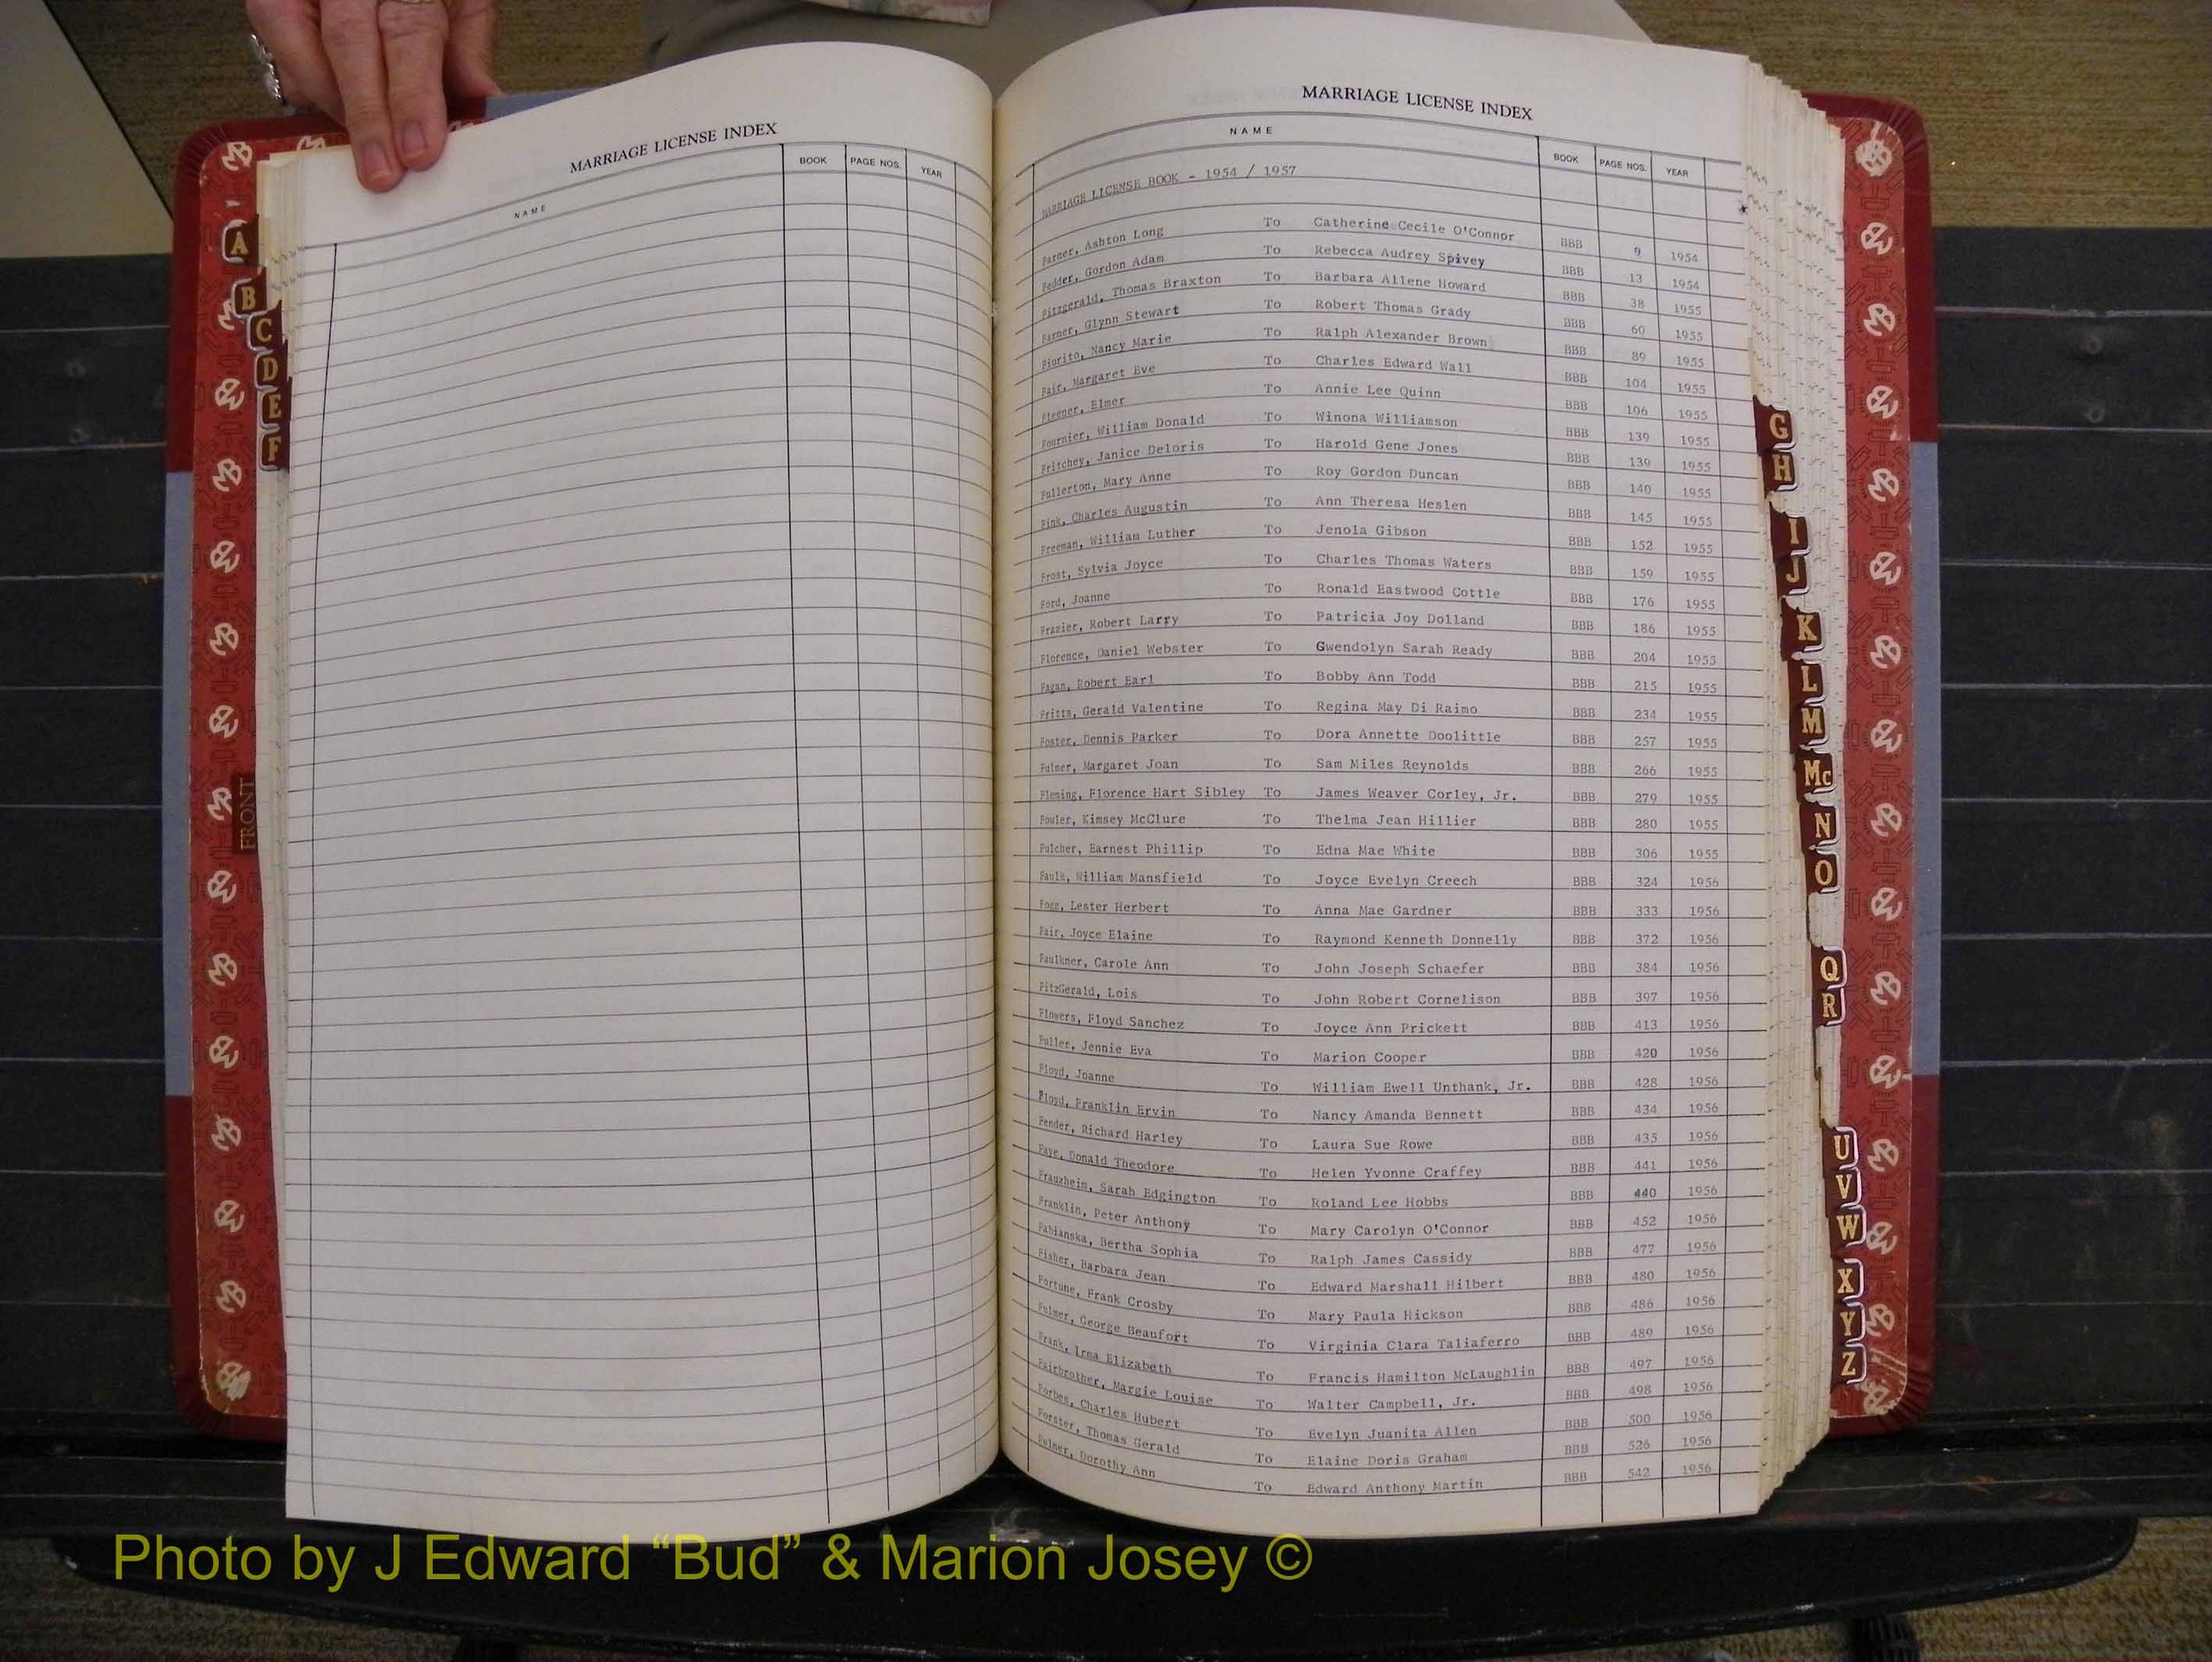 MARRIAGE LICENSE INDEX
NAME BOOK PAGE NOS. YEAR
A
B
C
D
E
F
FRONT
MARRIAGE LICENSE INDEX
NAME BOOK PAGE NOS. YEAR
MARRIAGE LICENSE BOOK - 1954 / 1957
Farner, Ashton Long To Catherine Cecile O'Connor BBB 9 1954
Fedder, Gordon Adam To Rebecca Audrey Spivey BBB 13 1954
Fitzgerald, Thomas Braxton To Barbara Allene Howard BBB 38 1955
Farner, Glynn Stewart To Robert Thomas Grady BBB 60 1955
Fiorito, Nancy Marie To Ralph Alexander Brown BBB 89 1955
Fair, Margaret Eve To Charles Edward Wall BBB 104 1955
Fleener, Elmer To Annie Lee Quinn BBB 106 1955
Fournier, William Donald To Winona Williamson BBB 139 1955
Fritchey, Janice Deloris To Harold Gene Jones BBB 139 1955
Fullerton, Mary Anne To Roy Gordon Duncan BBB 140 1955
Fink, Charles Augustin To Ann Theresa Heslen BBB 145 1955
Freeman, William Luther To Jenola Gibson BBB 152 1955
Frost, Sylvia Joyce To Charles Thomas Waters BBB 159 1955
Ford, Joanne To Ronald Eastwood Cottle BBB 176 1955
Frazier, Robert Larry To Patricia Joy Dolland BBB 186 1955
Florence, Daniel Webster To Gwendolyn Sarah Ready BBB 204 1955
Fagan, Robert Earl To Bobby Ann Todd BBB 215 1955
Fritts, Gerald Valentine To Regina May Di Raimo BBB 234 1955
Foster, Dennis Parker To Dora Annette Doolittle BBB 257 1955
Fulmer, Margaret Joan To Sam Miles Reynolds BBB 266 1955
Fleming, Florence Hart Sibley To James Weaver Corley, Jr. BBB 279 1955
Fowler, Kimsey McClure To Thelma Jean Hillier BBB 280 1955
Fulcher, Earnest Phillip To Edna Mae White BBB 306 1955
Faulk, William Mansfield To Joyce Evelyn Creech BBB 324 1956
Fogg, Lester Herbert To Anna Mae Gardner BBB 333 1956
Fair, Joyce Elaine To Raymond Kenneth Donnelly BBB 372 1956
Faulkner, Carole Ann To John Joseph Schaefer BBB 384 1956
FitzGerald, Lois To John Robert Cornelison BBB 397 1956
Flowers, Floyd Sanchez To Joyce Ann Prickett BBB 413 1956
Fuller, Jennie Eva To Marion Cooper BBB 420 1956
Floyd, Joanne To William Ewell Unthank, Jr. BBB 428 1956
Floyd, Franklin Ervin To Nancy Amanda Bennett BBB 434 1956
Fender, Richard Harley To Laura Sue Rowe BBB 435 1956
Faye, Donald Theodore To Helen Yvonne Craffey BBB 441 1956
Frauzheim, Sarah Edgington To Roland Lee Hobbs BBB 440 1956
Franklin, Peter Anthony To Mary Carolyn O'Connor BBB 452 1956
Fabianska, Bertha Sophia To Ralph James Cassidy BBB 477 1956
Fisher, Barbara Jean To Edward Marshall Hilbert BBB 480 1956
Fortune, Frank Crosby To Mary Paula Hickson BBB 486 1956
Fulmer, George Beaufort To Virginia Clara Taliaferro BBB 489 1956
Frank, Irma Elizabeth To Francis Hamilton McLaughlin BBB 497 1956
Fairbrother, Margie Louise To Walter Campbell, Jr. BBB 498 1956
Forbes, Charles Hubert To Evelyn Juanita Allen BBB 500 1956
Forster, Thomas Gerald To Elaine Doris Graham BBB 526 1956
Fulmer, Dorothy Ann To Edward Anthony Martin BBB 542 1956
G
H
I
J
K
L
M
Mc
N
O
Q
R
U
V
W
X
Y
Z
Photo by J Edward “Bud” & Marion Josey ©